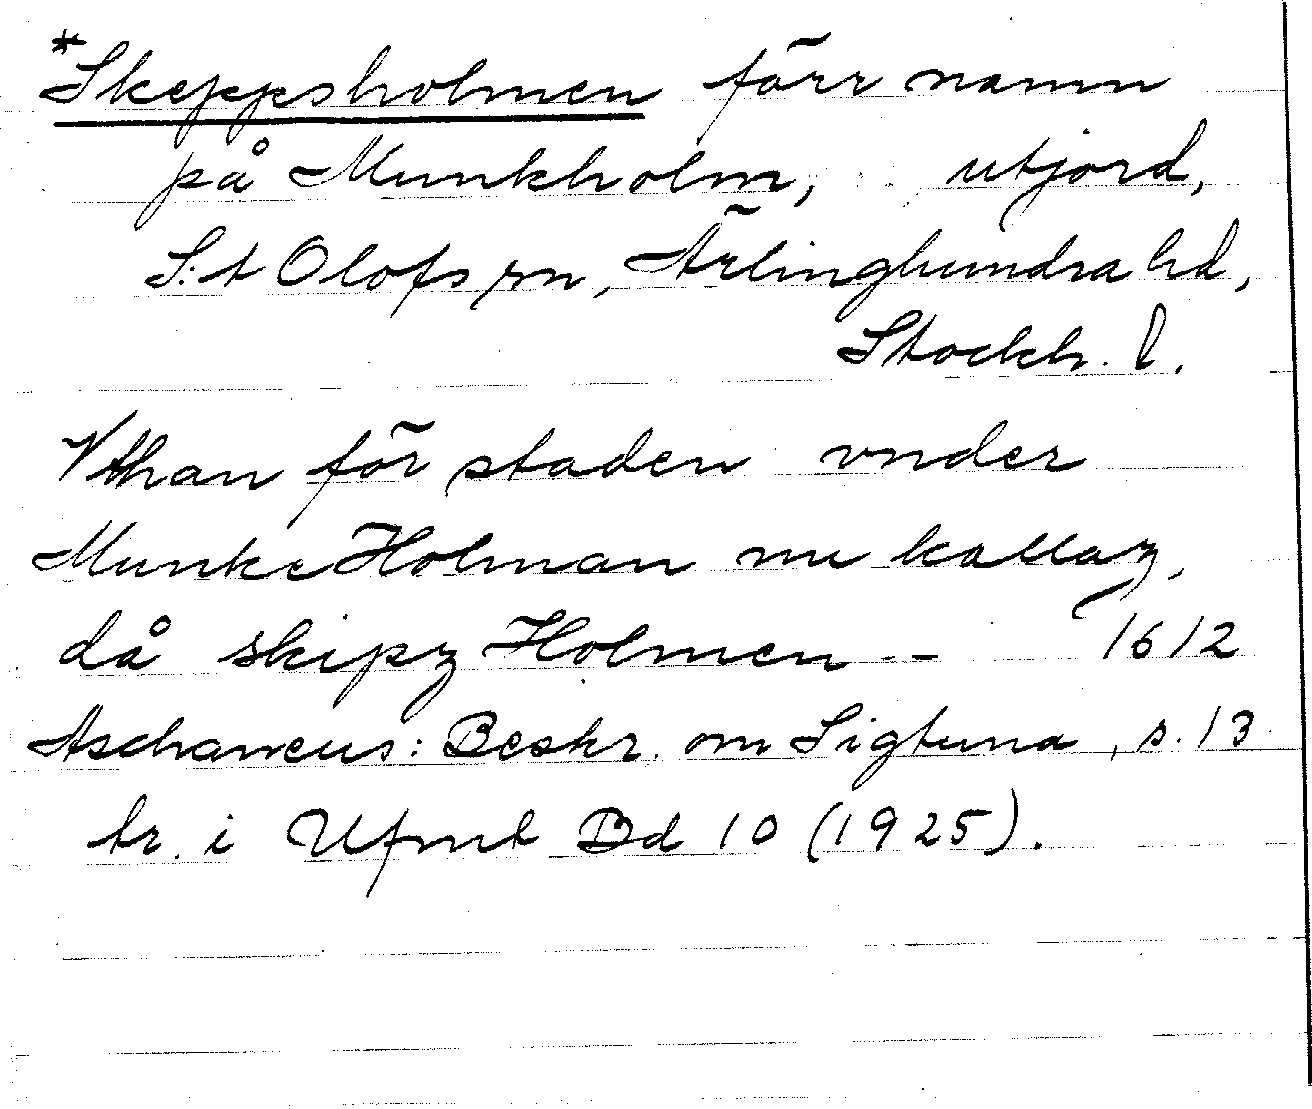 *Skeppsholmen förr namn
på Munkholm, utjord,
S:t Olofs sn, Ärlinghundra hd,
Stockh. l.
Vthan för staden vnder
MunkeHolman nu kallaz,
då skipz Holmen -- 1612
Aschaneus: Beskr. om Sigtuna, s. 13
tr. i Ufmt Bd 10 (1925).